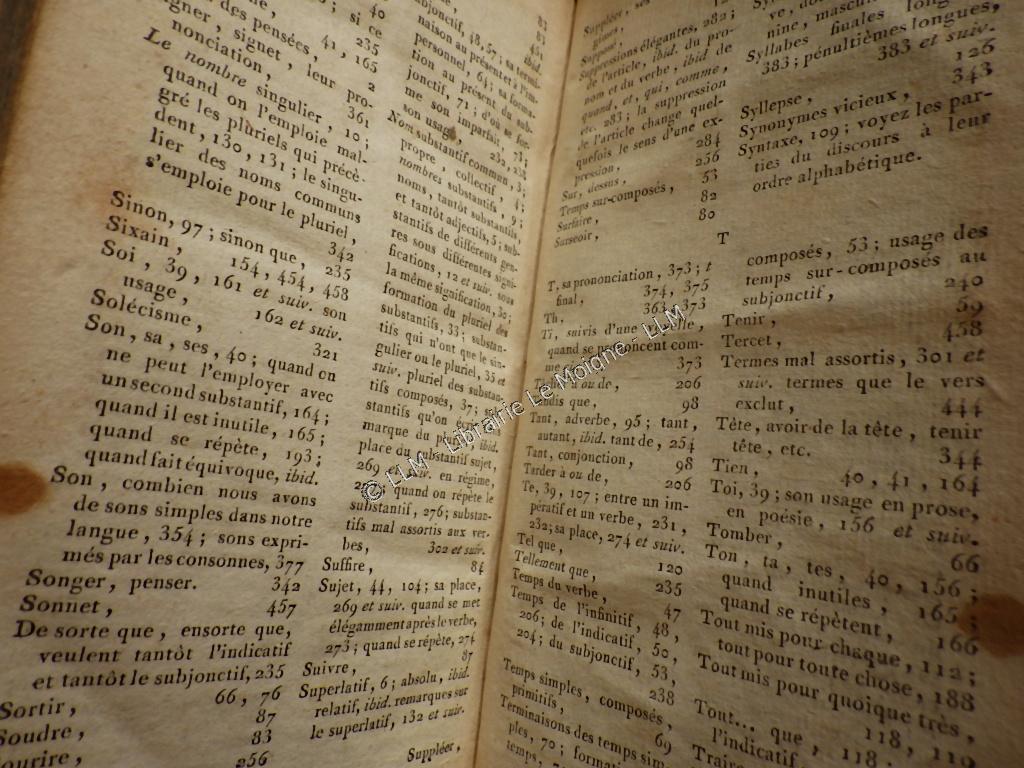 des pensées,
41, 235
signet, leur pro-
nonciation, 361
Le nombre singulier, 10;
quand on l'emploie mal-
gré les pluriels qui précè-
dent, 130, 131; le singu-
lier des noms communs
s'emploie pour le pluriel,
342
Sinon, 97; sinon que, 235
Sixain, 154, 454, 458
Soi, 39, 161 et suiv. son
usage, 162 et suiv.
Solécisme, 321
Son, sa, ses, 40; quand on
ne peut l'employer avec
un second substantif, 164;
quand il est inutile, 165;
quand se répète, 193;
quand fait équivoque, ibid.
Son, combien nous avons
de sons simples dans notre
langue, 354; sons expri-
més par les consonnes, 377
Songer, penser. 342
Sonnet, 457
De sorte que, ensorte que,
veulent tantôt l'indicatif
et tantôt le subjonctif, 235
Sortir, 66, 76
Soudre, 87
83
256
personnel, 64; sa forma-
tion au présent du sub-
jonctif, 71; d'où se for-
me son imparfait, 73;
son usage,
Nom substantif commun, 3;
propre, collectif, 4;
nombres substantifs, 9;
noms, tantôt substantifs,
et tantôt adjectifs, 5; sub-
stantifs de différens gen-
res sous différentes signi-
fications, 12 et suiv. sous
la même signification, 30;
formation du pluriel des
substantifs, 33; substan-
tifs qui n'ont que le sin-
gulier ou le pluriel, 35 et
suiv. pluriel des substan-
tifs composés, 37;
stantifs qu'on
marque du ibid.
place du substantif sujet,
269 et suiv. en régime,
quand on répète le
substantif, 276; substan-
tifs mal assortis aux ver-
bes, 302 et suiv.
Suffire, 84
Sujet, 44, 104; sa place,
269 et suiv. quand se met
élégamment après le verbe,
273; quand se répète, 274
Suivre, 87
Superlatif, 6; absolu, ibid.
relatif, ibid. remarques sur
le superlatif, 132 et suiv.
Suppléer,
Suppressions élégantes, 282;
de l'article, ibid. du pro-
nom et du verbe, ibid de
quand, et, qui, comme,
etc. 283; la suppression
de l'article change quel-
quefois le sens d'une ex-
pression, 284
Sur, dessus, 256
Temps sur-composés, 53
Surfaire, 82
Surseoir, 80
Syllabes finales
383; pénultièmes longues,
383 et suiv.
126
Syllepse, 343
Synonymes vicieux,
Syntaxe, 109; voyez les par-
ties du discours à leur
ordre alphabétique.
T
T, sa prononciation, 373; t
final, 374, 375
Th, 363, 373
Ti, suivis d'une
quand se prononcent com-
373
à ou de, 206
que, 98
Tant, adverbe, 95; tant,
autant, ibid. tant de, 254
Tant, conjonction, 98
Tarder à ou de, 206
Te, 39, 107; entre un im-
pératif et un verbe, 231,
232; sa place, 274 et suiv.
Tel que, 120
Tellement que, 235
Temps du verbe, 47
Temps de l'infinitif, 48,
206; de l'indicatif, 50,
204; du subjonctif, 53,
238
Temps simples, composés,
primitifs, 69
Terminaisons des temps sim-
ples, 70;
temps,
composés, 53; usage des
temps sur-composés au
subjonctif, 240
Tenir, 59
Tercet, 458
Termes mal assortis, 301 et
suiv. termes que le vers
exclut, 444
Tête, avoir de la tête, tenir
tête, etc. 344
Tien, 40, 41, 164
Toi, 39; son usage en prose,
en poésie, 156 et suiv.
Tomber, 66
Ton, ta, tes, 40, 156;
quand inutiles, 165;
quand se répètent, 166
Tout mis pour chaque, 112;
tout pour toute chose, 188
Tout mis pour quoique très,
118, 119
Tout... que,
l'indicatif
Traire
© LLM - Librairie Le Moigne - LLM